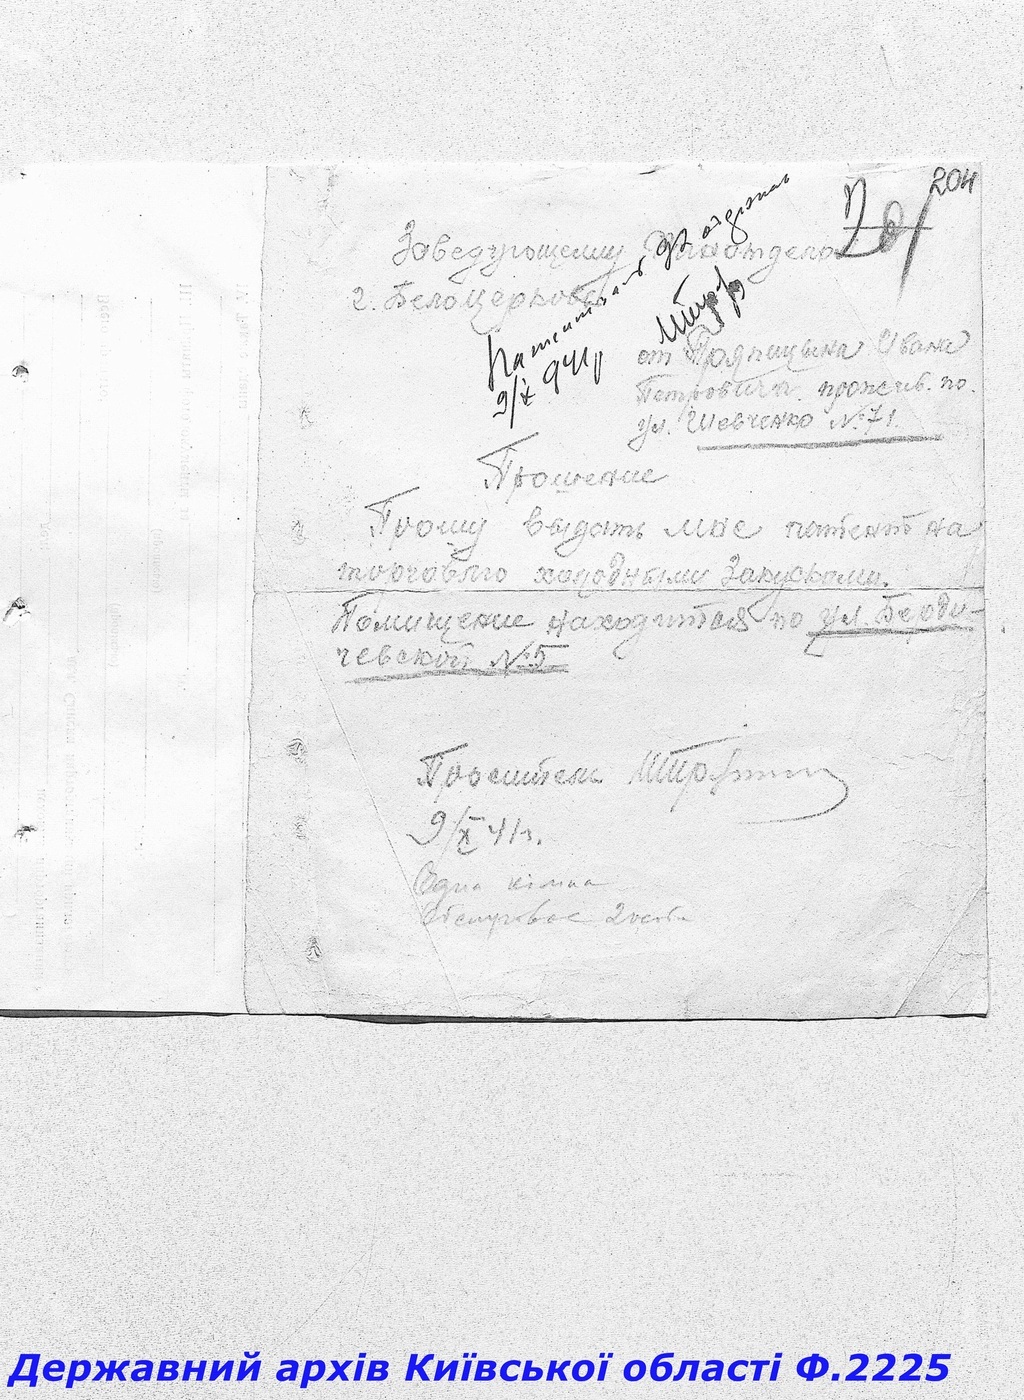 204
Заведующему Финотдела
г. Белоцерковь
9/X 941 г
от Тряпицына Ивана
Петровича. прожив. по.
ул. Шевченко №71.
Прошение
Прошу выдать мне патент на
торговлю холодными закусками.
Помищение находится по ул. Берди-
чевской №5
Проситель
9/X 41 г.
Одна кімна
2 особи
Державний архів Київської області Ф.2225